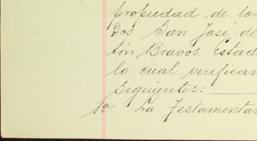 propiedad de los
Dos San José, de
tón Bravos, Estad
lo cual verificar
siguientes:
1a La Testamentar